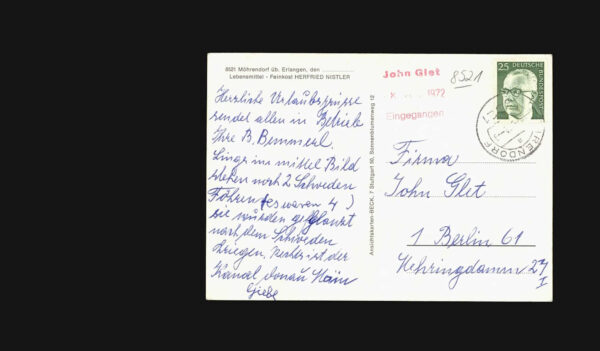 8521 Möhrendorf üb. Erlangen, den
Lebensmittel - Feinkost HERFRIED NISTLER
Herzliche Urlaubsgrüsse
sendet allen im Betrieb
Ihre B. Bemmerl.
Lings im mittel Bild
stehen noch 2 Schweden
Föhren (es waren 4)
sie wurden gepflanzt
nach dem Schweden
Kriegen, Rechts ist der
Kanal Donau Main
Ansichtskarten-BECK, 7 Stuttgart 50, Sonnenblumenweg 12
John Glet
1972
Eingegangen
8521
25 DEUTSCHE BUNDESPOST
Firma
John Glet
1 Berlin 61
Mehringdamm 27